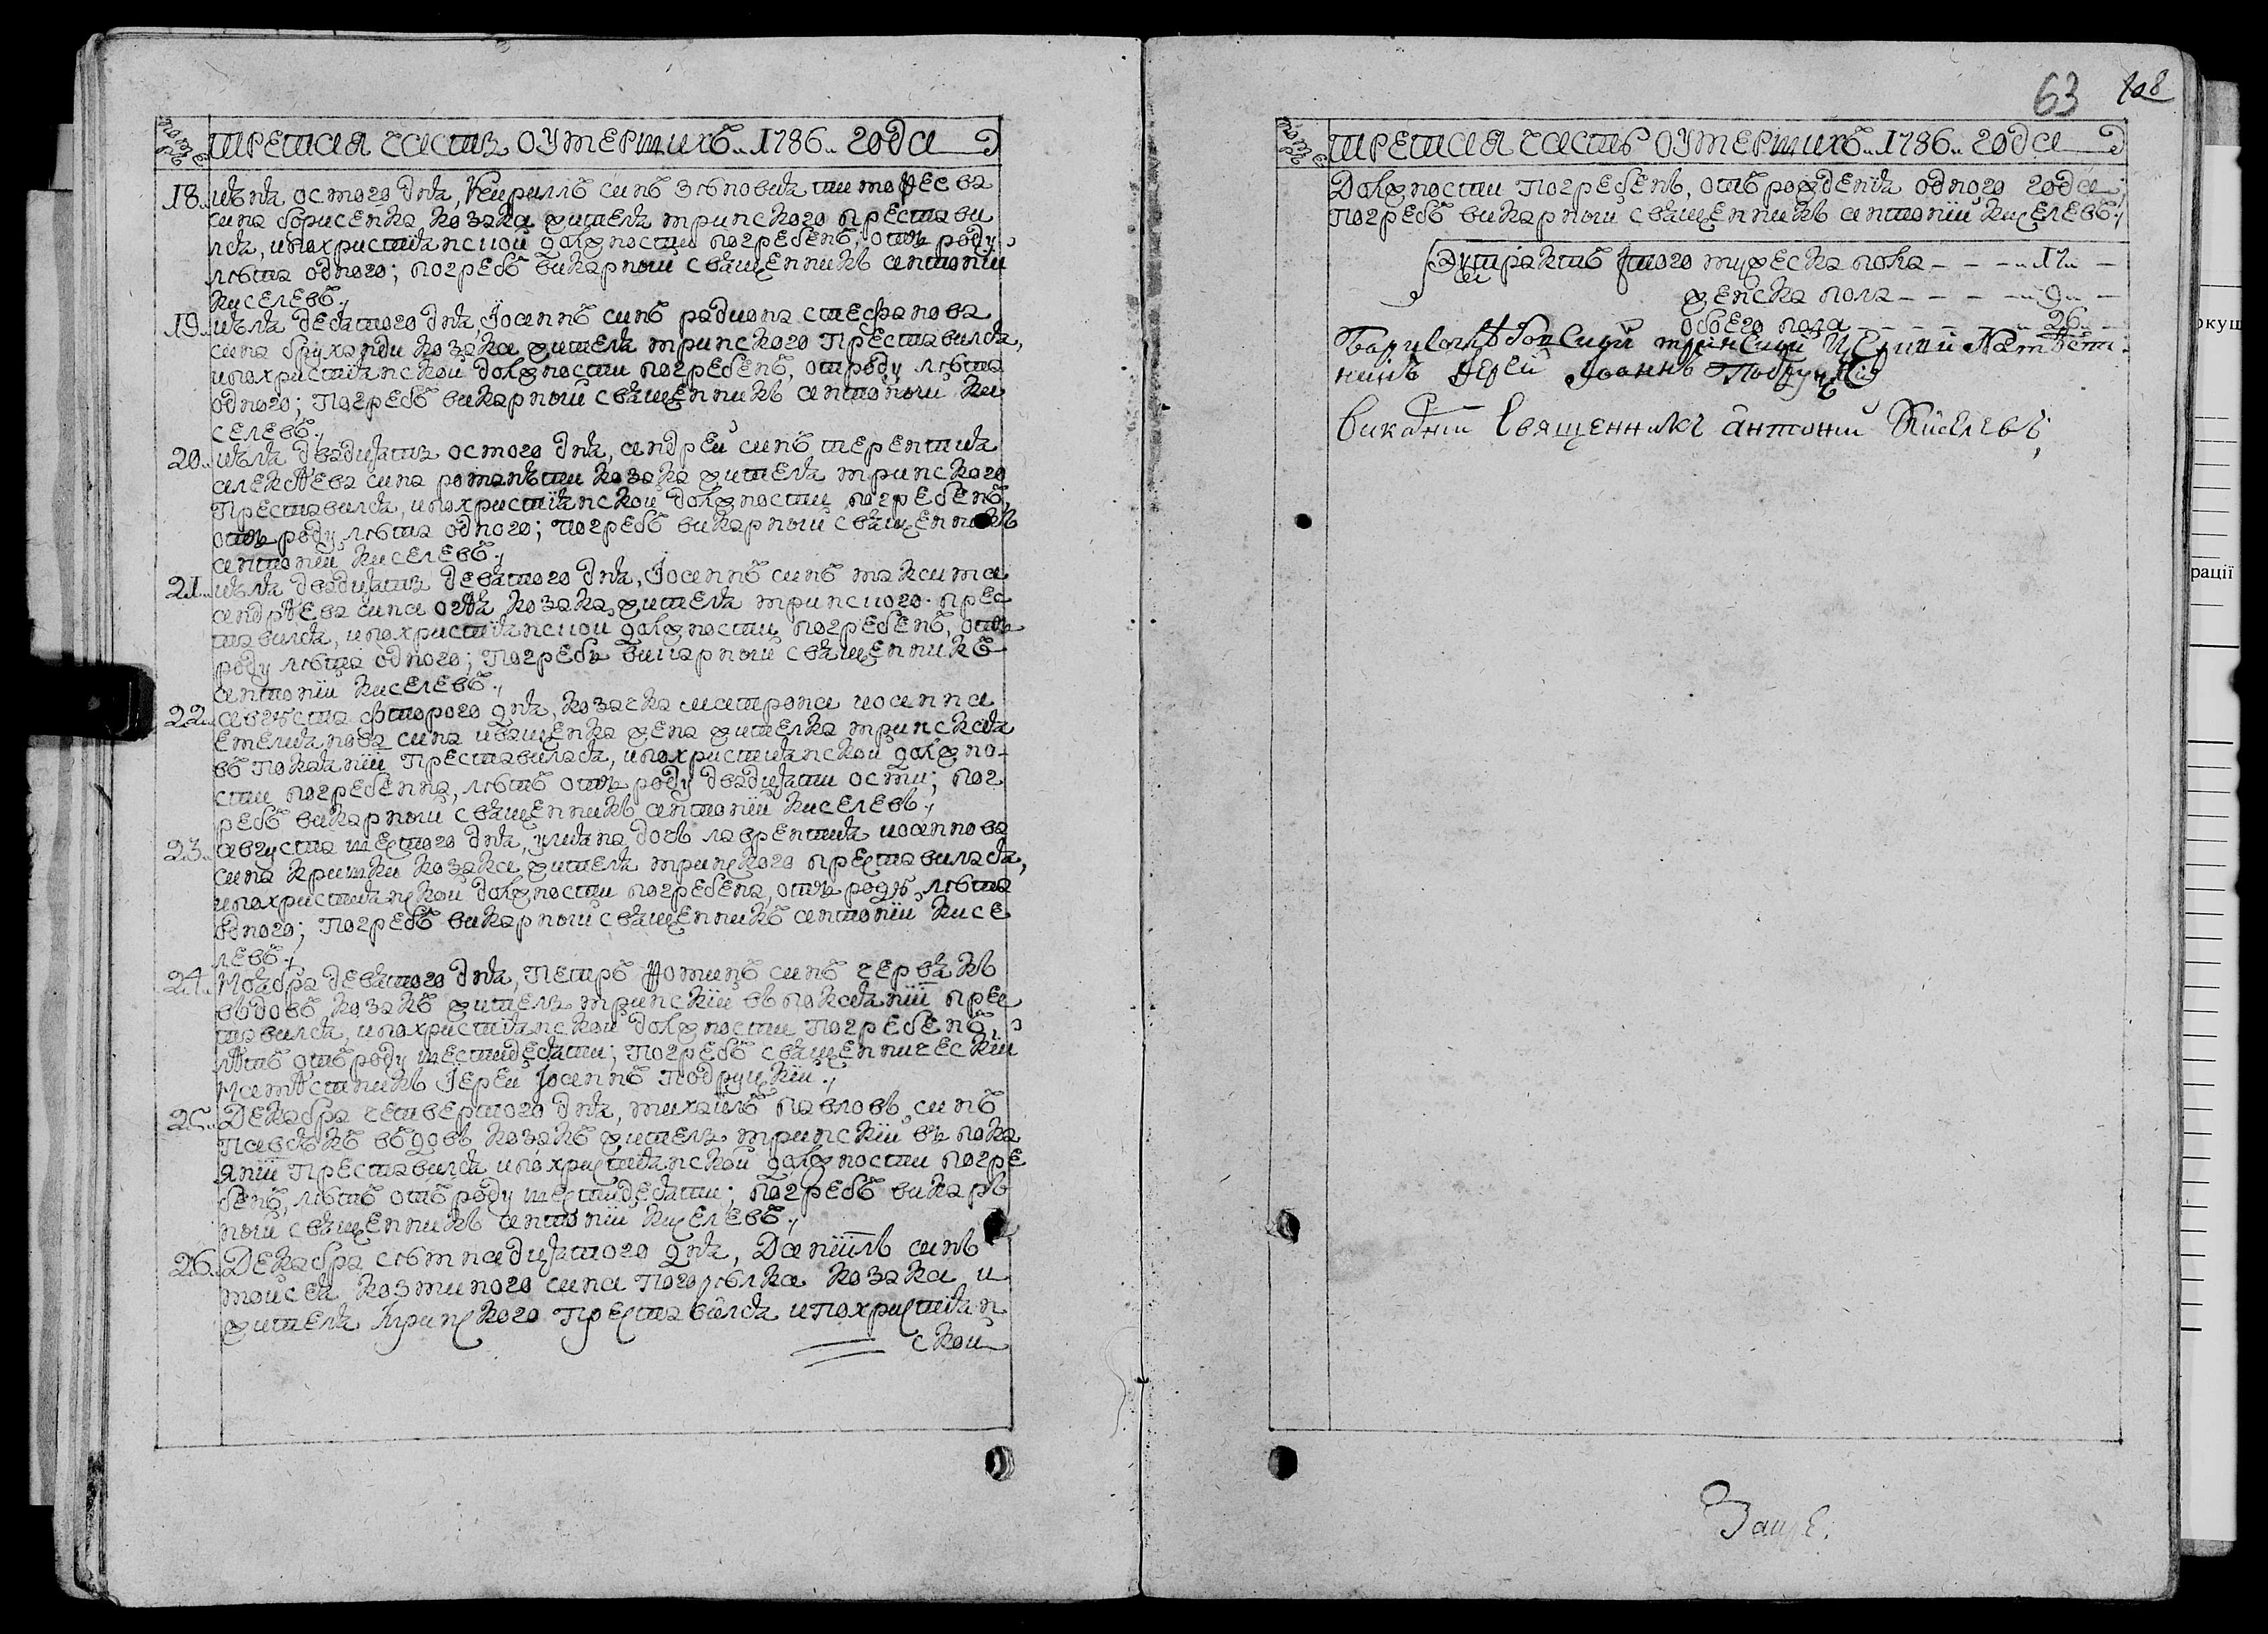 третая часть оумершихъ 1786 года
18 июня осмого дня, Кирилъ синъ зѣновия тимофеева
сина борисенка козака жителя тринского престави
лся, ипохристиянской должности погребенъ, отъ роду
лѣта одного; погребъ викарный священникъ антоній
киселевъ
19 июля девятого дня, Іосиппъ синъ радиона стефанова
сина бруханди козака жителя тринского преставился,
ипохристіянской должности погребенъ, отроду лѣта
одного; погребъ викарный священникъ антоный ки
селевъ
20 июля двадцять осмого дня, андрей синъ терентия
алексѣева сина романьти козака жителя тринского
преставился, ипохристіянской должности погребенъ,
отъ роду лѣта одного; погребъ викарный священникъ
антоній киселевъ
21 июля двадцять девятого дня, Іосиппъ синъ максима
андрѣева сина огія козака жителя тринского прес
тавился, ипохристіянской должности погребенъ, отъ
роду лѣта одного; погребъ викарный священникъ
антоній киселевъ
22 августа фторого дня, козачка матрона иосиппа
емелиянова сина иващенка жена жителка тринская
въ покаяніи преставилася, ипохристиянской должно-
сти погребенна, лѣтъ отъ роду двадцяти осми; пог
ребъ викарный священникъ антоній киселевъ
23 августа шестого дня, улияна дочь лаврентия иосиппова
сина кришки козака жителя тринского преставилася,
ипохристиянской должности погребена, отъ роду лѣта
одного; погребъ викарный священникъ антоній кисе
левъ
24 Ноября девятого дня, Петръ Фоминъ синъ червякъ
вдовъ козакъ житель тринскій въ покаяніи прес
тавился, ипохристіянской должности погребенъ,
лѣтъ отъ роду шестидесяти; погребъ священническій
намѣстникъ Іерей Іосиппъ Подруцкій
25 Декабря четвертого дня, михаилъ павловъ синъ
вдовъ козакъ житель тринскій въ пока
яніи преставился ипохристиянской должности погре
бенъ, лѣтъ отъ роду шестидесяти; погребъ викарь
ный священникъ антоній киселевъ
26 Декабря сѣмнадцятого дня, Даніилъ синъ
мойсея козминого сина погорѣлка козака и
жителя тринского преставился ипохристиян
ской
63 108
третая часть оумершихъ 1786 года
Должности погребенъ, отъ рожденія одного года;
погребъ викарный священникъ антоній киселевъ
Экстрактъ мужеска пола 17
женска пола 9
обоего пола 26
тринский намѣст
никъ Иерей Подруцкій
Викарній Священникъ антоній Киселевъ